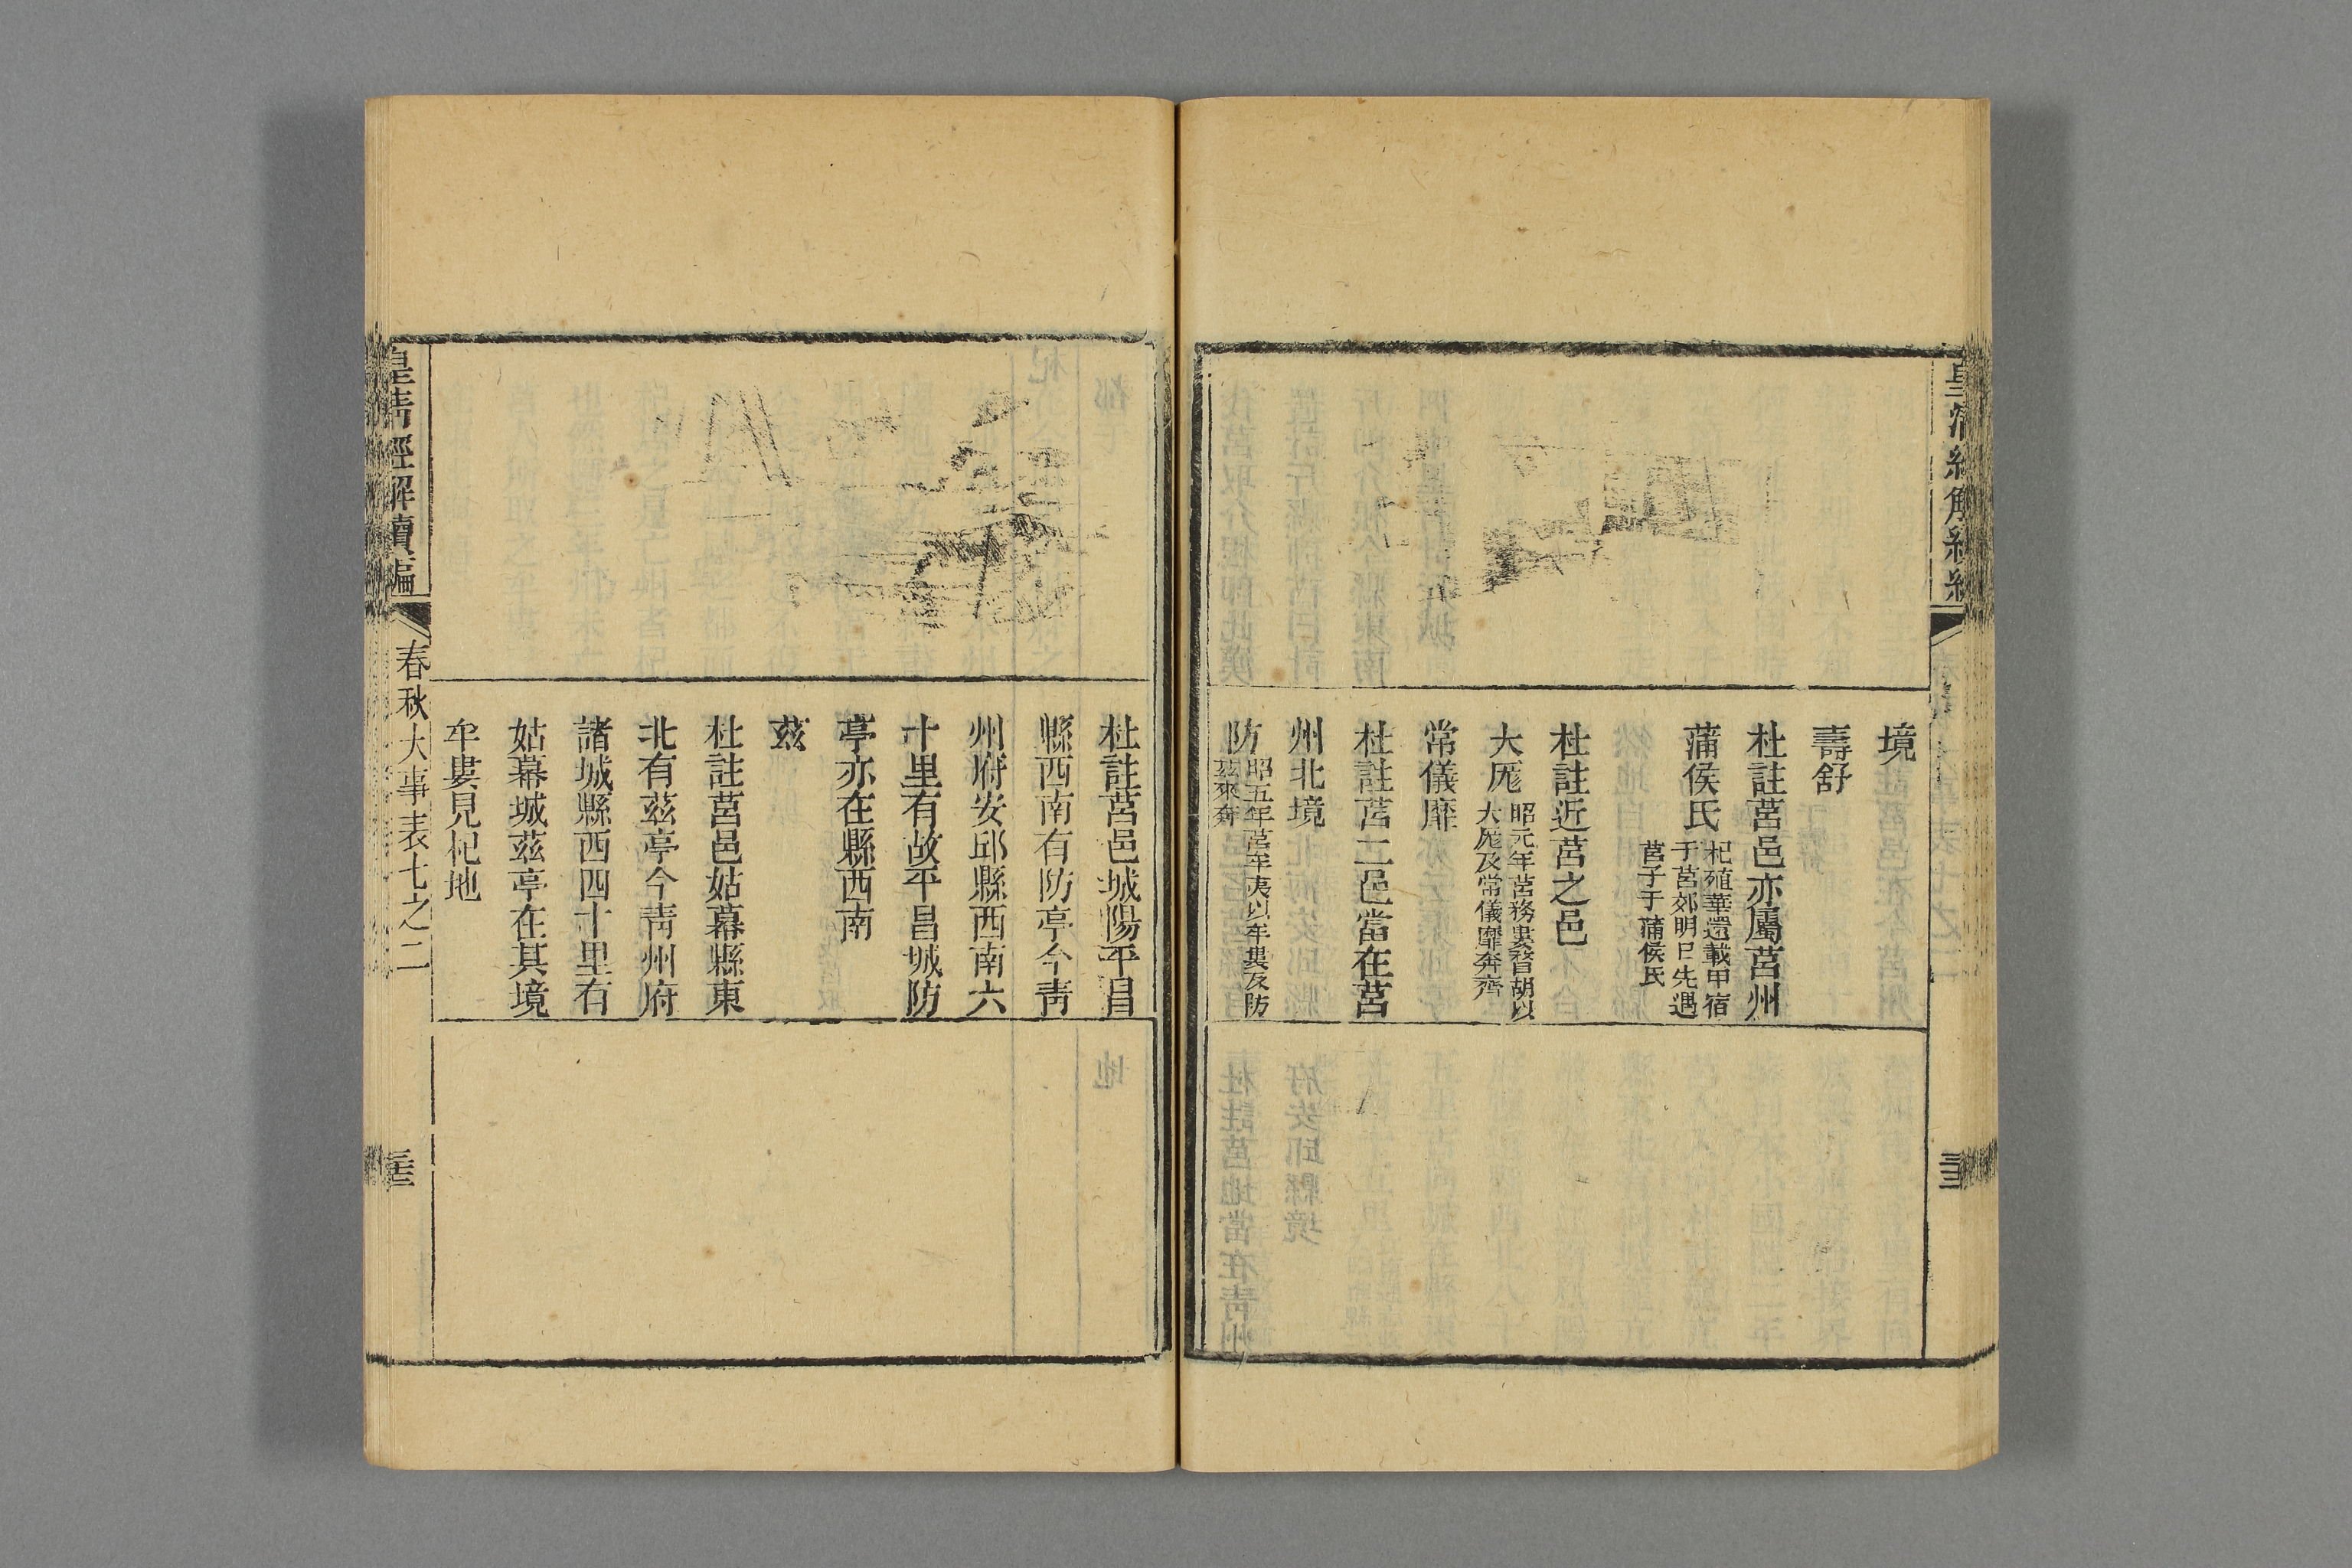 境
壽舒
杜註莒邑亦屬莒州
蒲侯氏
杞殖華還載甲宿
于莒郊明日先遇
莒子于蒲侯氏
杜註近莒之邑
大厖
昭元年莒務婁瞀胡以
大厖及常儀靡奔齊
常儀靡
杜註莒二邑當在莒
州北境
防
昭五年莒牟夷以牟婁及防
茲來奔
杜註莒邑城陽平昌
縣西南有防亭今靑
州府安邱縣西南六
十里有故平昌城防
亭亦在縣西南
茲
杜註莒邑姑幕縣東
北有茲亭今靑州府
諸城縣西四十里有
姑幕城茲亭在其境
牟婁見杞地
皇淸經解續編
春秋大事表七之二